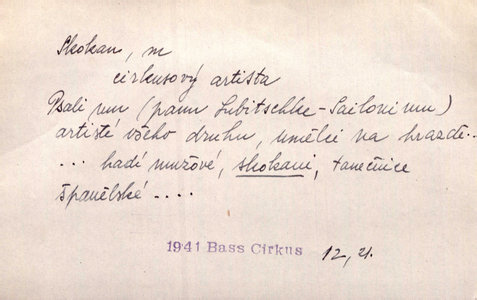 Skokan, m
cirkusový artista
Psali mu (panu Lubitschke-Sailovi mu)
artisté všeho druhu, umělci na hrazdě..
... hadí mužové, skokani, tanečnice
španělské ....
1941 Bass Cirkus 12, 21.